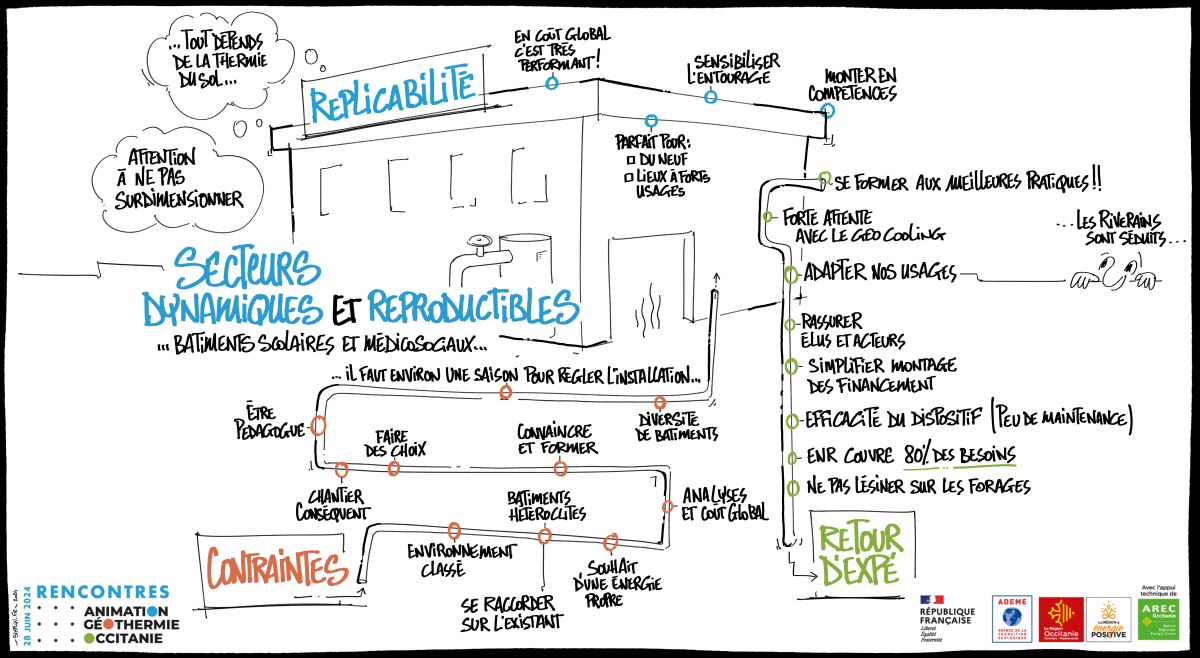 ...TOUT DÉPENDS
DE LA THERMIE
DU SOL...
ATTENTION
À NE PAS
SURDIMENSIONNER
REPLICABILITÉ
EN COÛT GLOBAL
C'EST TRÈS
PERFORMANT!
SENSIBILISER
L'ENTOURAGE
MONTER EN
COMPÉTENCES
PARFAIT POUR:
DU NEUF
LIEUX À FORTS
USAGES
SECTEURS
DYNAMIQUES ET REPRODUCTIBLES
... BATIMENTS SCOLAIRES ET MÉDICOSOCIAUX...
SE FORMER AUX MEILLEURES PRATIQUES!!
FORTE ATTENTE
AVEC LE GÉO COOLING
ADAPTER NOS USAGES
...LES RIVERAINS
SONT SÉDUITS...
RASSURER
ÉLUS ET ACTEURS
SIMPLIFIER MONTAGE
DES FINANCEMENT
EFFICACITÉ DU DISPOSITIF (PEU DE MAINTENANCE)
ENR COUVRE 80% DES BESOINS
NE PAS LÉSINER SUR LES FORAGES
RETOUR
D'EXPÉ
... IL FAUT ENVIRON UNE SAISON POUR RÉGLER L'INSTALLATION...
DIVERSITÉ
DE BATIMENTS
ÊTRE
PÉDAGOGUE
FAIRE
DES CHOIX
CONVAINCRE
ET FORMER
CHANTIER
CONSÉQUENT
BATIMENTS
HÉTÉROCLITES
ANALYSES
ET COUT GLOBAL
ENVIRONNEMENT
CLASSÉ
SE RACCORDER
SUR L'EXISTANT
SOUHAIT
D'UNE ÉNERGIE
PROPRE
CONTRAINTES
28 JUIN 2024
RENCONTRES
ANIMATION
GÉOTHERMIE
OCCITANIE
RÉPUBLIQUE
FRANÇAISE
Liberté
Égalité
Fraternité
ADEME
AGENCE DE LA
TRANSITION
ÉCOLOGIQUE
La Région
Occitanie
Pyrénées - Méditerranée
La RÉGION à
énergie
POSITIVE
Avec l'appui
technique de
AREC
Occitanie
Agence
Régionale
Énergie Climat